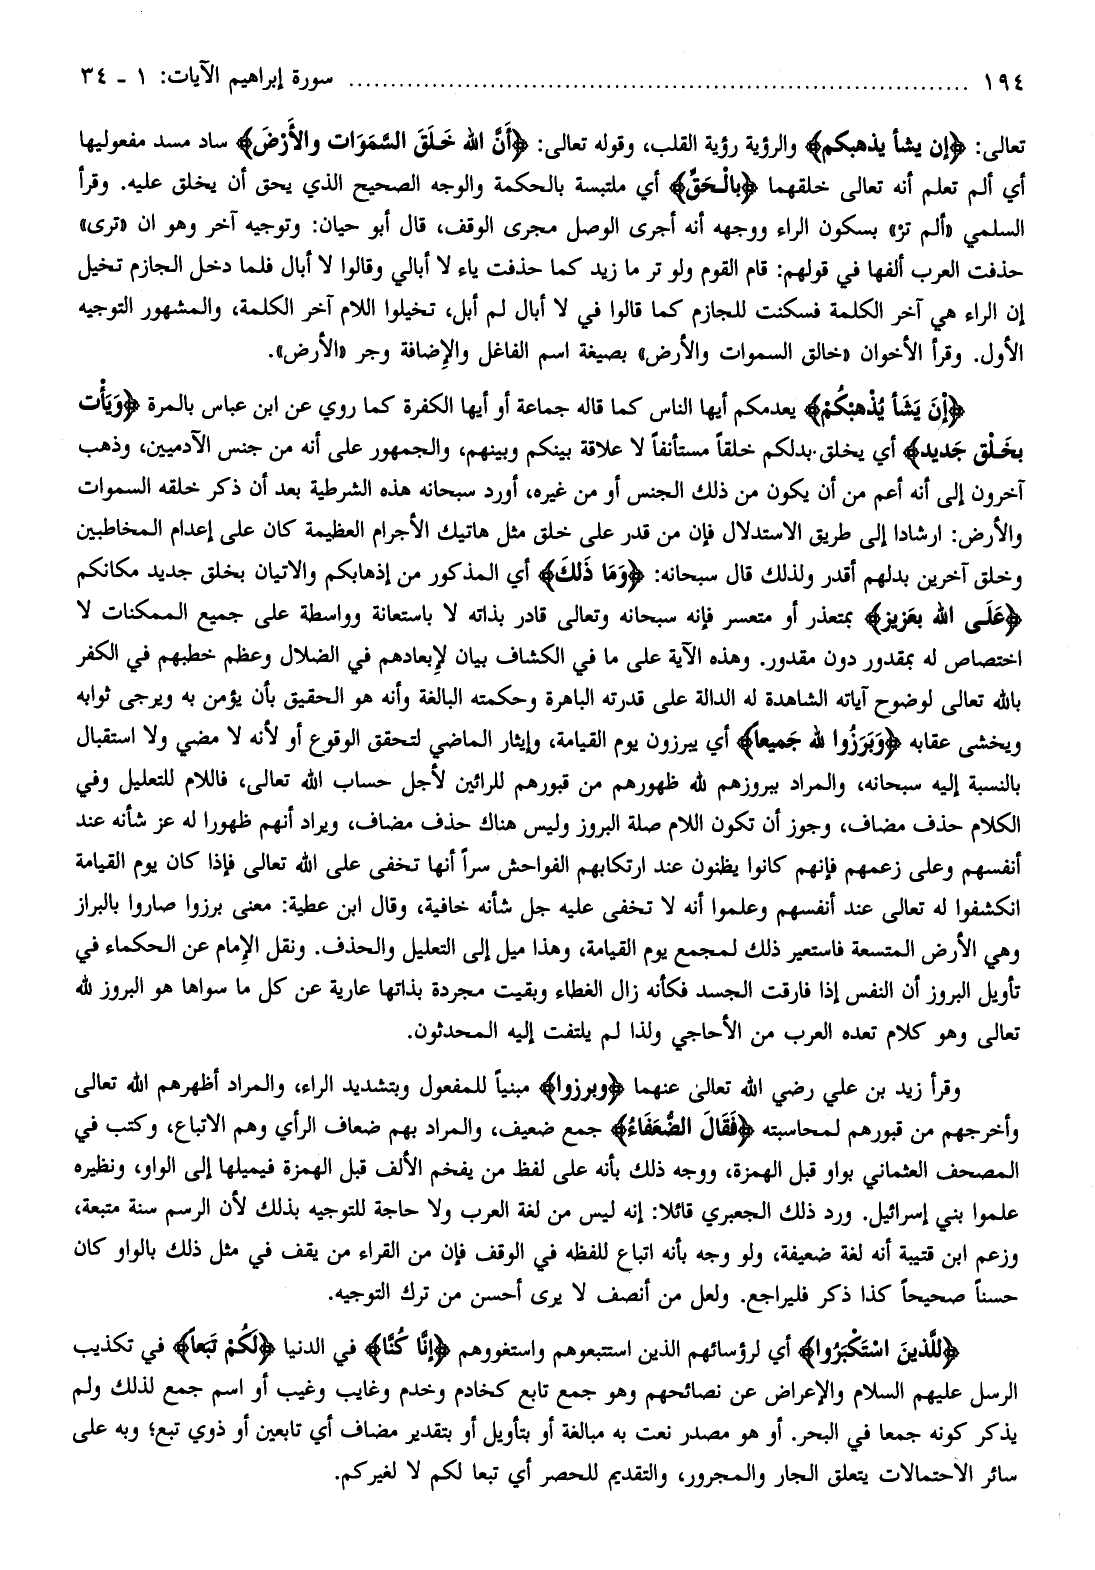 ١٩٤ ........................................................................ سورة إبراهيم الآيات: ١ - ٣٤
تعالى: ﴿إن يشأ يذهبكم﴾ والرؤية رؤية القلب، وقوله تعالى: ﴿أَنَّ الله خَلَقَ السَّمَوَات والأَرْضَ﴾ ساد مسد مفعوليها
أي ألم تعلم أنه تعالى خلقهما ﴿بالْحَقِّ﴾ أي ملتبسة بالحكمة والوجه الصحيح الذي يحق أن يخلق عليه. وقرأ
السلمي «ألم ترْ» بسكون الراء ووجهه أنه أجرى الوصل مجرى الوقف، قال أبو حيان: وتوجيه آخر وهو ان «ترى»
حذفت العرب ألفها في قولهم: قام القوم ولو تر ما زيد كما حذفت ياء لا أبالي وقالوا لا أبال فلما دخل الجازم تخيل
إن الراء هي آخر الكلمة فسكنت للجازم كما قالوا في لا أبال لم أبل، تخيلوا اللام آخر الكلمة، والمشهور التوجيه
الأول. وقرأ الأخوان «خالق السموات والأرض» بصيغة اسم الفاعل والإضافة وجر «الأرض».
﴿إنْ يَشَأ يُذْهبْكُمْ﴾ يعدمكم أيها الناس كما قاله جماعة أو أيها الكفرة كما روي عن ابن عباس بالمرة ﴿وَيَأْت
بخَلْق جَديد﴾ أي يخلق بدلكم خلقاً مستأنفاً لا علاقة بينكم وبينهم، والجمهور على أنه من جنس الآدميين، وذهب
آخرون إلى أنه أعم من أن يكون من ذلك الجنس أو من غيره، أورد سبحانه هذه الشرطية بعد أن ذكر خلقه السموات
والأرض: ارشادا إلى طريق الاستدلال فإن من قدر على خلق مثل هاتيك الأجرام العظيمة كان على إعدام المخاطبين
وخلق آخرين بدلهم أقدر ولذلك قال سبحانه: ﴿وَمَا ذَلكَ﴾ أي المذكور من إذهابكم والاتيان بخلق جديد مكانكم
﴿عَلَى الله بعَزيز﴾ بمتعذر أو متعسر فإنه سبحانه وتعالى قادر بذاته لا باستعانة وواسطة على جميع الممكنات لا
اختصاص له بمقدور دون مقدور. وهذه الآية على ما في الكشاف بيان لإبعادهم في الضلال وعظم خطبهم في الكفر
بالله تعالى لوضوح آياته الشاهدة له الدالة على قدرته الباهرة وحكمته البالغة وأنه هو الحقيق بأن يؤمن به ويرجى ثوابه
ويخشى عقابه ﴿وَبَرَزُوا لله جَميعاً﴾ أي يبرزون يوم القيامة، وإيثار الماضي لتحقق الوقوع أو لأنه لا مضي ولا استقبال
بالنسبة إليه سبحانه، والمراد ببروزهم لله ظهورهم من قبورهم للرائين لأجل حساب الله تعالى، فاللام للتعليل وفي
الكلام حذف مضاف، وجوز أن تكون اللام صلة البروز وليس هناك حذف مضاف، ويراد أنهم ظهورا له عز شأنه عند
أنفسهم وعلى زعمهم فإنهم كانوا يظنون عند ارتكابهم الفواحش سراً أنها تخفى على الله تعالى فإذا كان يوم القيامة
انكشفوا له تعالى عند أنفسهم وعلموا أنه لا تخفى عليه جل شأنه خافية، وقال ابن عطية: معنى برزوا صاروا بالبراز
وهي الأرض المتسعة فاستعير ذلك لمجمع يوم القيامة، وهذا ميل إلى التعليل والحذف. ونقل الإمام عن الحكماء في
تأويل البروز أن النفس إذا فارقت الجسد فكأنه زال الغطاء وبقيت مجردة بذاتها عارية عن كل ما سواها هو البروز لله
تعالى وهو كلام تعده العرب من الأحاجي ولذا لم يلتفت إليه المحدثون.
وقرأ زيد بن علي رضي الله تعالى عنهما ﴿وبرزوا﴾ مبنياً للمفعول وبتشديد الراء، والمراد أظهرهم الله تعالى
وأخرجهم من قبورهم لمحاسبته ﴿فَقَالَ الضُّعَفَاءُ﴾ جمع ضعيف، والمراد بهم ضعاف الرأي وهم الاتباع، وكتب في
المصحف العثماني بواو قبل الهمزة، ووجه ذلك بأنه على لفظ من يفخم الألف قبل الهمزة فيميلها إلى الواو، ونظيره
علموا بني إسرائيل. ورد ذلك الجعبري قائلا: إنه ليس من لغة العرب ولا حاجة للتوجيه بذلك لأن الرسم سنة متبعة،
وزعم ابن قتيبة أنه لغة ضعيفة، ولو وجه بأنه اتباع للفظه في الوقف فإن من القراء من يقف في مثل ذلك بالواو كان
حسناً صحيحاً كذا ذكر فليراجع. ولعل من أنصف لا يرى أحسن من ترك التوجيه.
﴿للَّذينَ اسْتَكْبَرُوا﴾ أي لرؤسائهم الذين استتبعوهم واستغووهم ﴿إنَّا كُنَّا﴾ في الدنيا ﴿لَكُمْ تَبَعاً﴾ في تكذيب
الرسل عليهم السلام والإعراض عن نصائحهم وهو جمع تابع كخادم وخدم وغايب وغيب أو اسم جمع لذلك ولم
يذكر كونه جمعا في البحر. أو هو مصدر نعت به مبالغة أو بتأويل أو بتقدير مضاف أي تابعين أو ذوي تبع؛ وبه على
سائر الاحتمالات يتعلق الجار والمجرور، والتقديم للحصر أي تبعا لكم لا لغيركم.